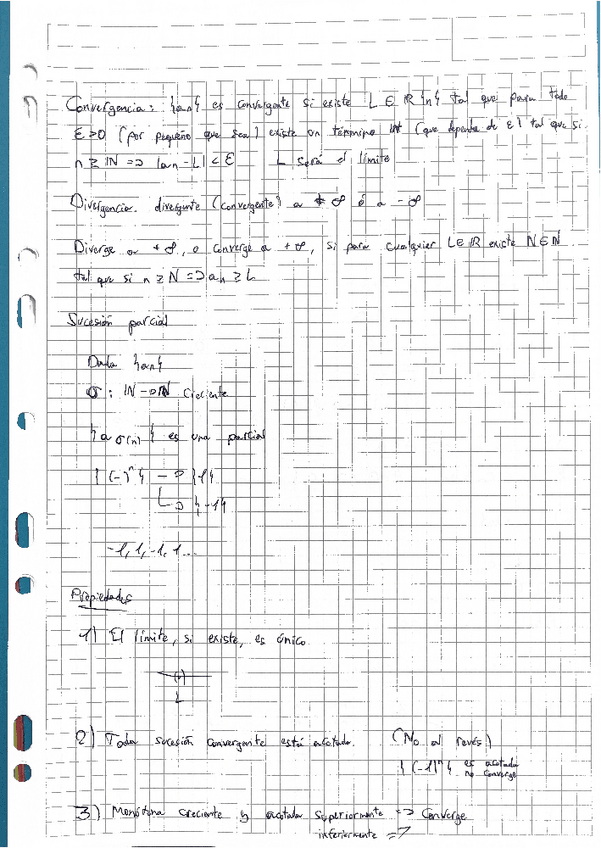 Convergencia: {an} es convergente si existe L ∈ ℝ {n} tal que para todo
ε>0 (por pequeño que sea) existe un término (que depende de ε) tal que si
n ≥ ℕ => |an - L| < ε L será el límite
Divergencia. divergente (convergente) a + ∞ ó a - ∞
Diverge a +∞, o converge a +∞, si para cualquier L∈ℝ existe N∈ℕ
tal que si n ≥ N => an ≥ L
Sucesión parcial
Dada {an}
σ: ℕ → ℕ creciente
{a σ(n)} es una parcial
{(-)^n} → {1}
↳ {-1}
-1, 1, -1, 1...
Propiedades
1) El límite, si existe, es único.
L
2) Toda sucesión convergente está acotada. (No al revés)
{(-1)^n} es acotada
no converge
3) Monótona creciente y acotada superiormente => Converge
inferiormente =>